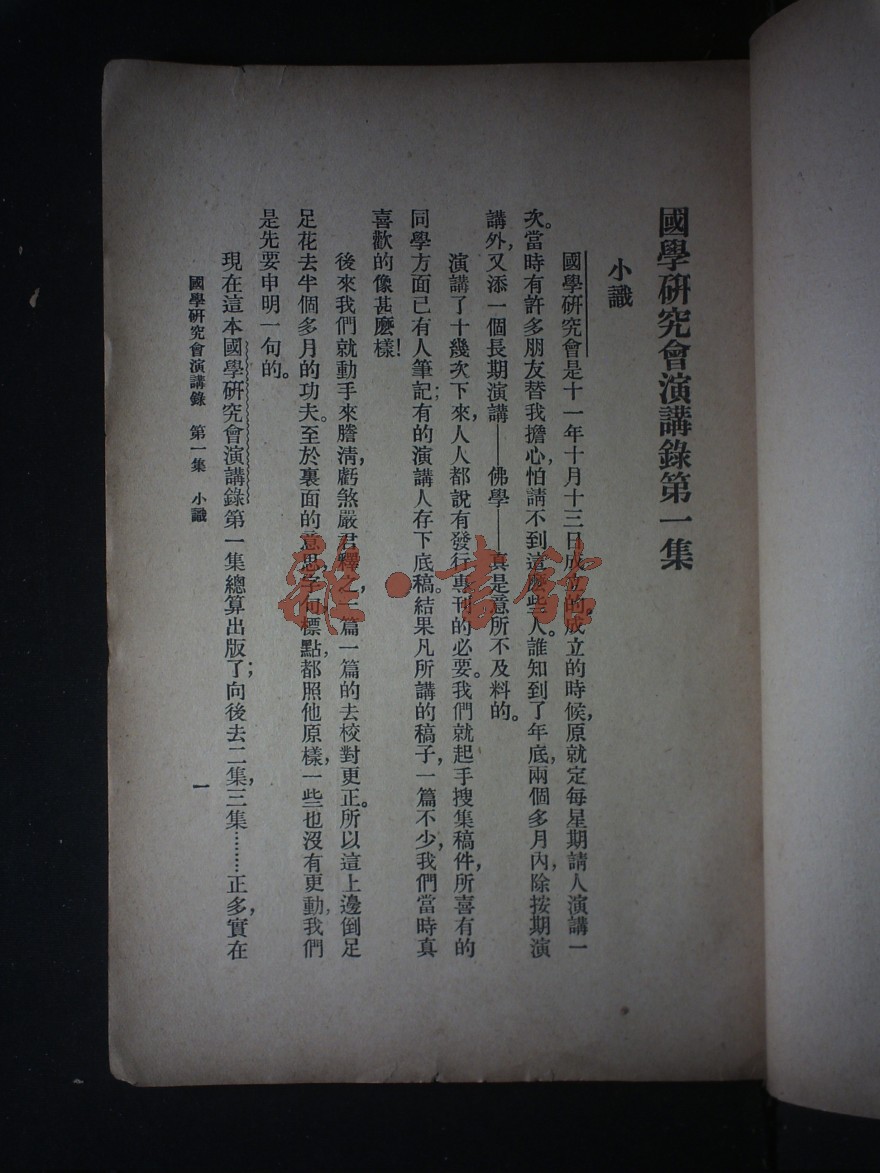 國學研究會演講錄第一集
小識
國學研究會是十一年十月十三日成立的。成立的時候，原就定每星期請人演講一
次。當時有許多朋友替我擔心，怕請不到這麼些人。誰知到了年底，兩個多月內，除按期演
講外，又添一個長期演講——佛學——真是意所不及料的。
演講了十幾次下來，人人都說有發行專刊的必要。我們就起手搜集稿件，所喜有的
同學方面已有人筆記；有的演講人存下底稿。結果凡所講的稿子，一篇不少，我們當時真
喜歡的像甚麼樣！
後來我們就動手來謄清，虧煞嚴君釋之，一篇一篇的去校對更正。所以這上邊倒足
足花去半個多月的功夫。至於裏面的意思，字句，標點，都照他原樣，一些也沒有更動，我們
是先要申明一句的。
現在這本國學研究會演講錄第一集總算出版了；向後去二集，三集………正多，實在
國學研究會演講錄　第一集　小識
一
雜·書館